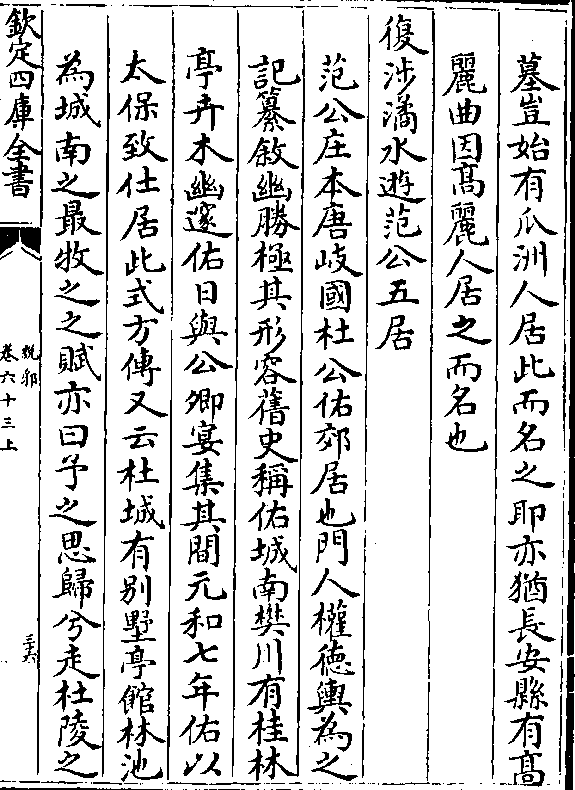 墓豈始有瓜洲人居此而名之耶亦猶長安縣有高
麗曲因髙麗人居之而名也
復渉潏水遊范公五居
范公庄本唐岐國杜公佑郊居也門人權徳輿為之
記纂敘幽勝極其形容舊史稱佑城南樊川有桂林
亭卉木幽邃佑日與公卿宴集其間元和七年佑以
太保致仕居此式方傳又云杜城有别墅亭館林池
為城南之最牧之之賦亦曰予之思歸兮走杜陵之
欽定四庫全書
說郛
卷六十三上
三六